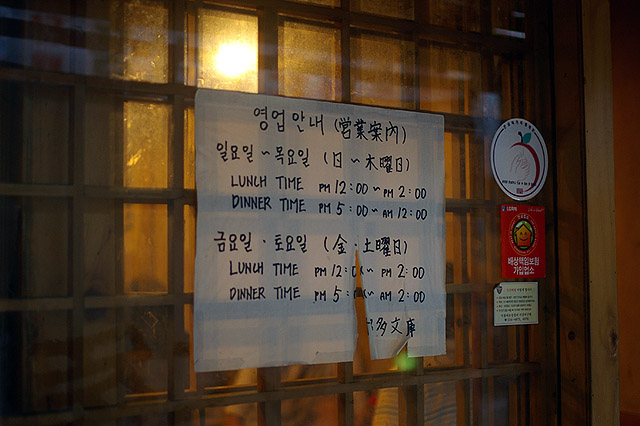 영업안내 (営業案內)
일요일 ~ 목요일 (日 ~ 木曜日)
LUNCH TIME PM 12:00 ~ PM 2:00
DINNER TIME PM 5:00 ~ AM 12:00
금요일 · 토요일 (金 · 土曜日)
LUNCH TIME PM 12:0 ~ PM 2:00
DINNER TIME PM 5:0 ~ AM 2:00
多文庫
배상책임보험
가입업소